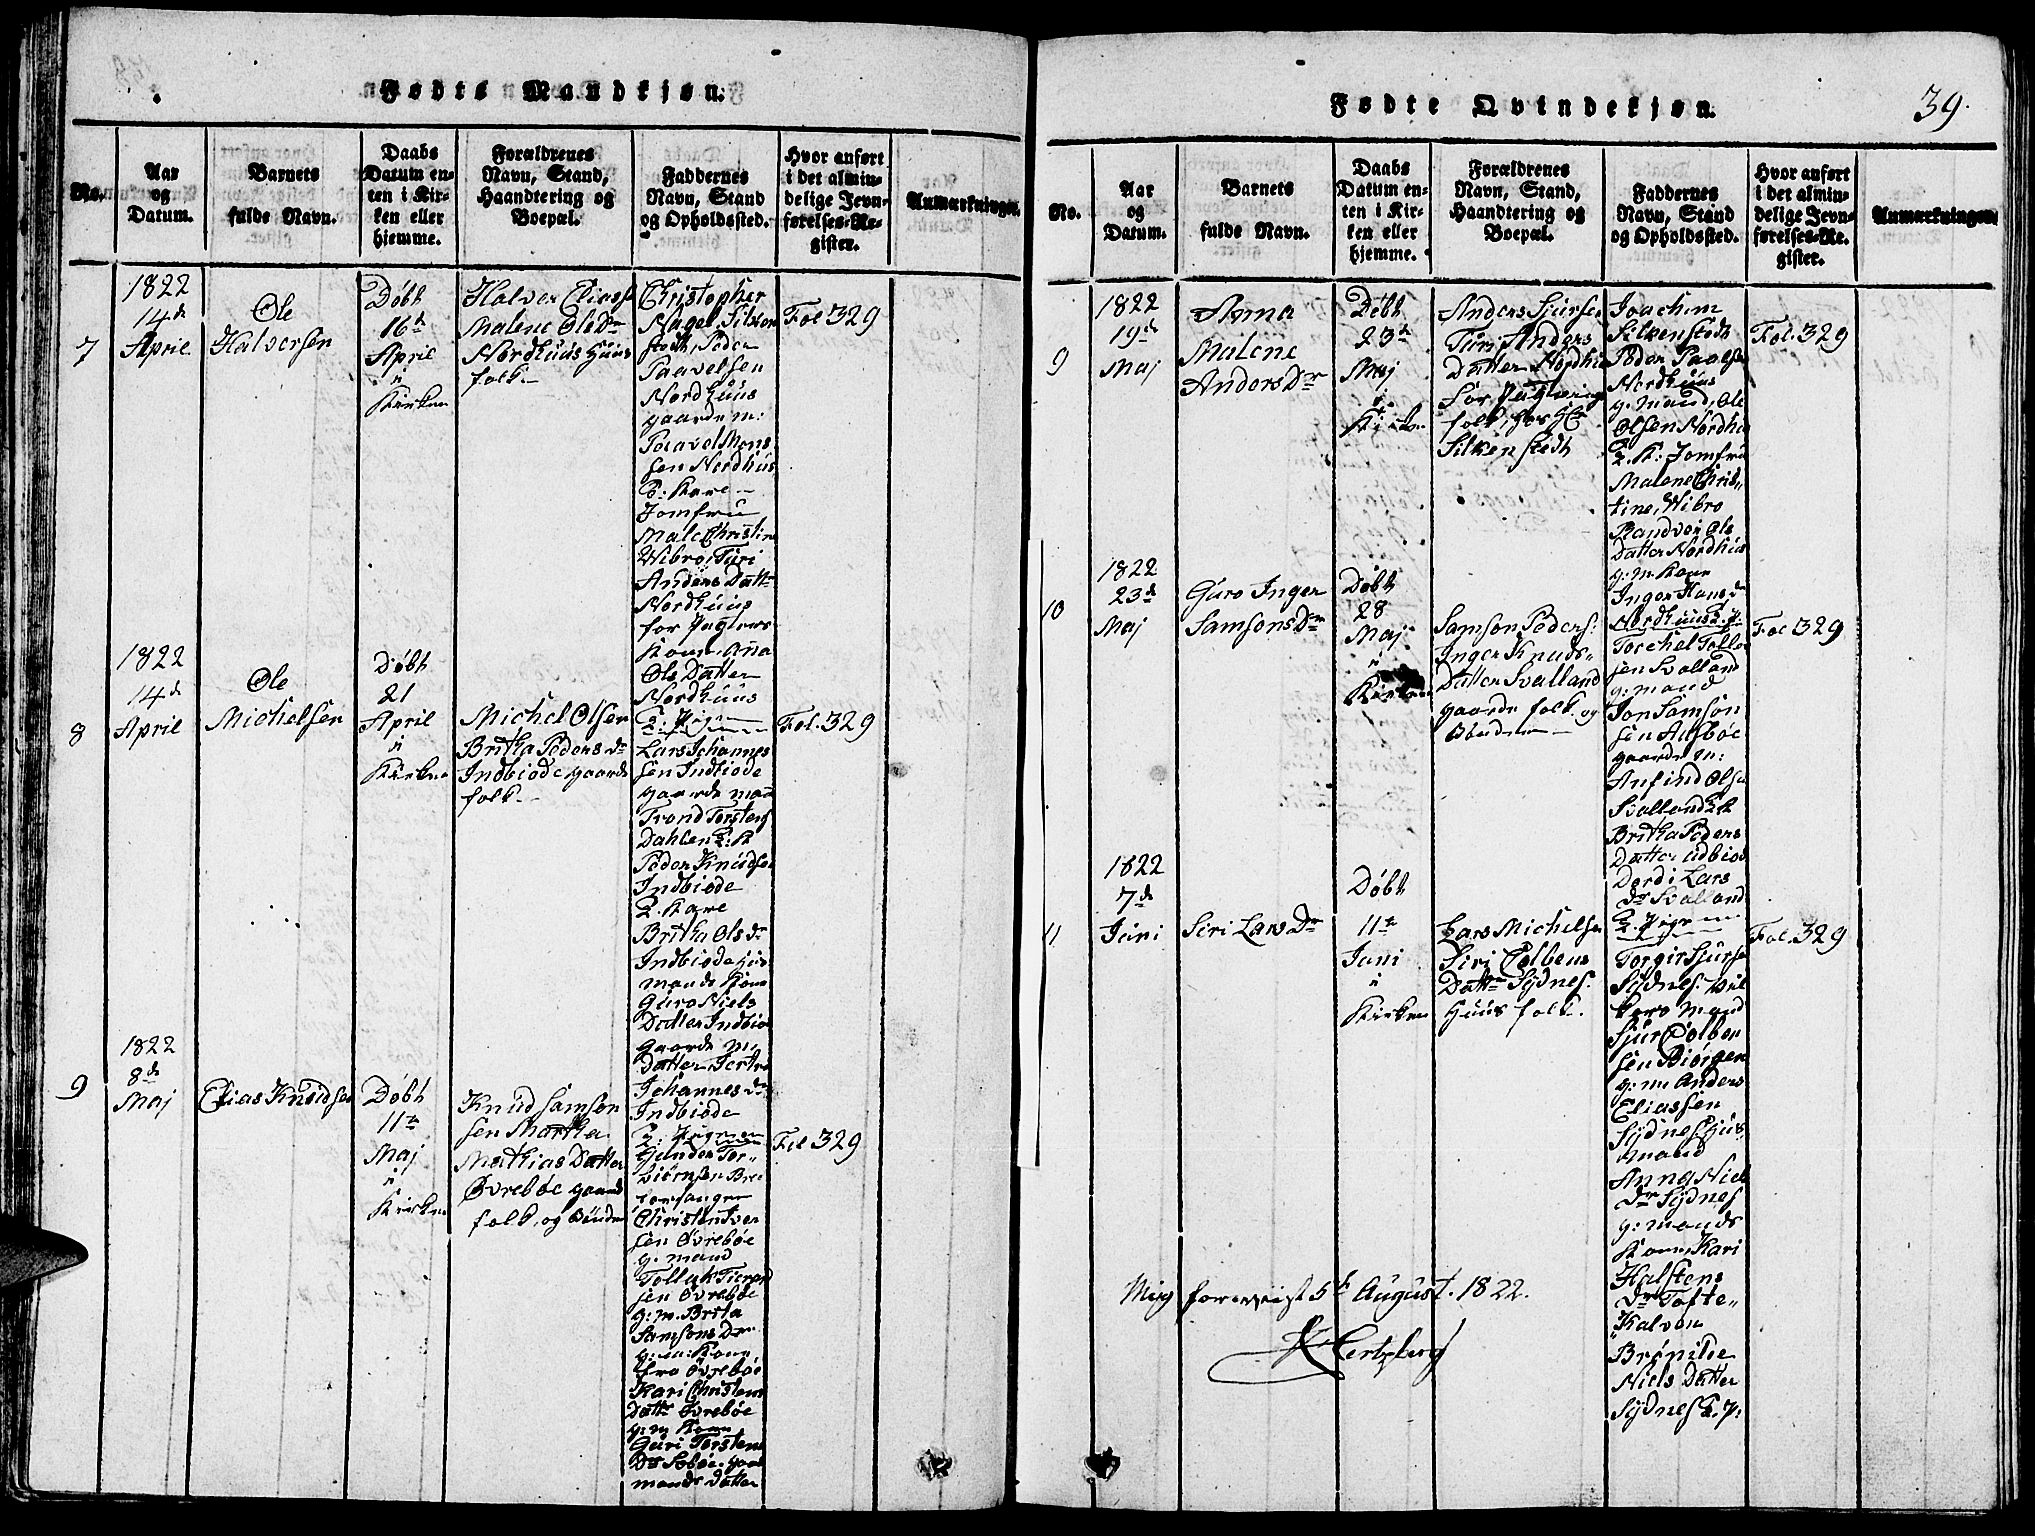 Fødte Mandkjøn.
No.
Aar
og
Datum.
Barnets
fulde Navn.
Daabs
Datum en-
ten i Kir-
ken eller
hjemme.
Forældrenes
Navn, Stand,
Haandtering og
Boepæl.
Faddernes
Navn, Stand
og Opholdssted.
Hvor anført
i det almin-
delige Jevn-
førelses-Re-
gister.
Anmærkninger.
7
1822
14de
April
Ole
Halversen
Døbt
16te
April
i
Kirken
Halver Eliass
Malene OlsDr
Nordhuus Huus
folk
Christopher
Nagel Silken
stedt, Peder
Paavelsen
Nordhuus
gaardm:
Paavel Mons
sen Nordhuus
G: Kare
Jomfru
Male Christine
Wibro, Turi
Anders Datter
Nordhuus
for
Kone, Ana
Ols Datter
Nordhuus
2: Pige
Fol 329
8
1822
14de
April
Ole
Michelsen
Døbt
21
April
i
Kirken
Michel Olsen
Britha Peders dr
Indbiøde gaards
folk
Lars Johannes
sen Indbiøde
gaards mand
Trond Torstens
Dahlen 2: K
Peder Knudsen
Indbiøde
2. Kare
Britha Ols dr
Indbiøde huus
mands Kone
Guro Niels
Datter Indbiøde
gaards m:
Datter,
Johannes dr
Indbiøde
2: Pigen
Fol. 329
9
1822
8de
Maj
Elias Knudsen
Døbt
11te
Maj
i
Kirken
Knud Samson
sen Martha
Mathias Datter
Øvrebøe gaard
folk og Bønder
Gunder Tor-
biørnsen
Christen Iver
sen Øvrebøe
g: mand
Tollak
sen Øvrebøe
g: m. Brita
Samsons Dr
g: m: Kone
fra Øvrebøe
Kari Christens
Datr Øvrebøe
g: m Kone
Guri Torstens
Dr Søbøe. gaard
mands Datter
Fol 329
Fødte Qvindekjøn.
39.
No.
Aar
og
Datum.
Barnets
fulde Navn.
Daabs
Datum en-
ten i Kir-
ken eller
hjemme.
Forældrenes
Navn, Stand,
Haandtering og
Boepæl.
Faddernes
Navn, Stand
og Opholdssted.
Hvor anført
i det almin-
delige Jevn-
førelses-Re-
gister.
Anmærkninger.
9
1822
19de
Maj
Anna
Malene
Anders Dr
Døbt
23te
Maj
i
Kirken
Anders Sjursen
Turi Anders
Datter Nordhuus
for
folk, hos Hr
Silkenstedt
Joachim
Silkenstedt
Peder Paalsen
Nordhuus
g: mand, Ole
Olsen Nordhuus
2. K: Jomfru
Malene Chris-
tine, Wibro
Randver Ols
Datter Nordhuus
g: m. Kone
Inger Hans dr
Nordhuus 2. P:
Fol. 329
10
1822
23de
Maj
Guro Inger
Samsons Dr
Døbt
28
Maj
i
Kirken
Samson Peders:
Inger Knuds-
Datter Svalland
gaards folk og
Bønder
Torchel Tolle
sen Svalland
g: mand
Jon Samson
sen Aasbøe
gaards m:
Anfind Olsen
Svalland 2 K
Britha Peders
Datter Udbiøde
Dordi Lars
Dr Svalland
2. Pige
Fol 329
11
1822
7de
Juni
Siri Lars Dr
Døbt
11te
Juni
i
Kirken
Lars Michelsen
Siri Colbens
Datter Sydnes
Huus folk.
Torgir Sjursen
Sydnes. Vil
kors mand
Sjur Colben
sen Biørgen
g: m Anders
Eliassen
Sydnes huus
mand
Anna Niels
Dr Sydnes
g: mands
Kone, Kari
Halstens
Dr Tofte-
Kalven
Brønilde
Niels Datter
Sydnes 2. P:
Fol. 329
Mig foreviist 5te August. 1822.
Hertzberg